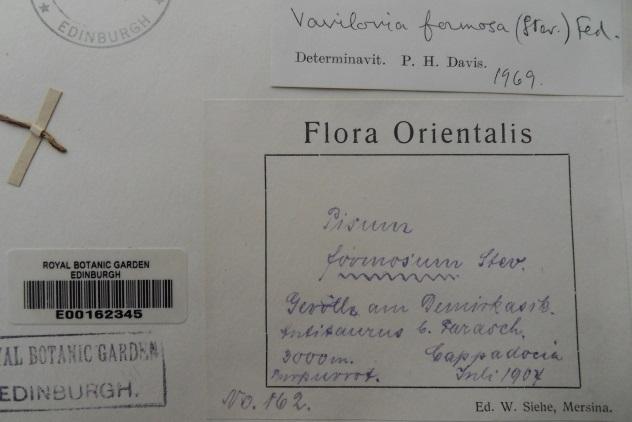 EDINBURGH
Vavilovia formosa (Stev.) Fed.
Determinavit. P. H. Davis.
1969.
Flora Orientalis
Pisum
formosum Stev.
Gerölle am Demirkasik.
Antitaurus b. Farasch.
3000m. Cappadocia
Purpurrot. Juli 1907
No. 162.
Ed. W. Siehe, Mersina.
ROYAL BOTANIC GARDEN
EDINBURGH
E00162345
AL BOTANIC GARDEN
EDINBURGH.